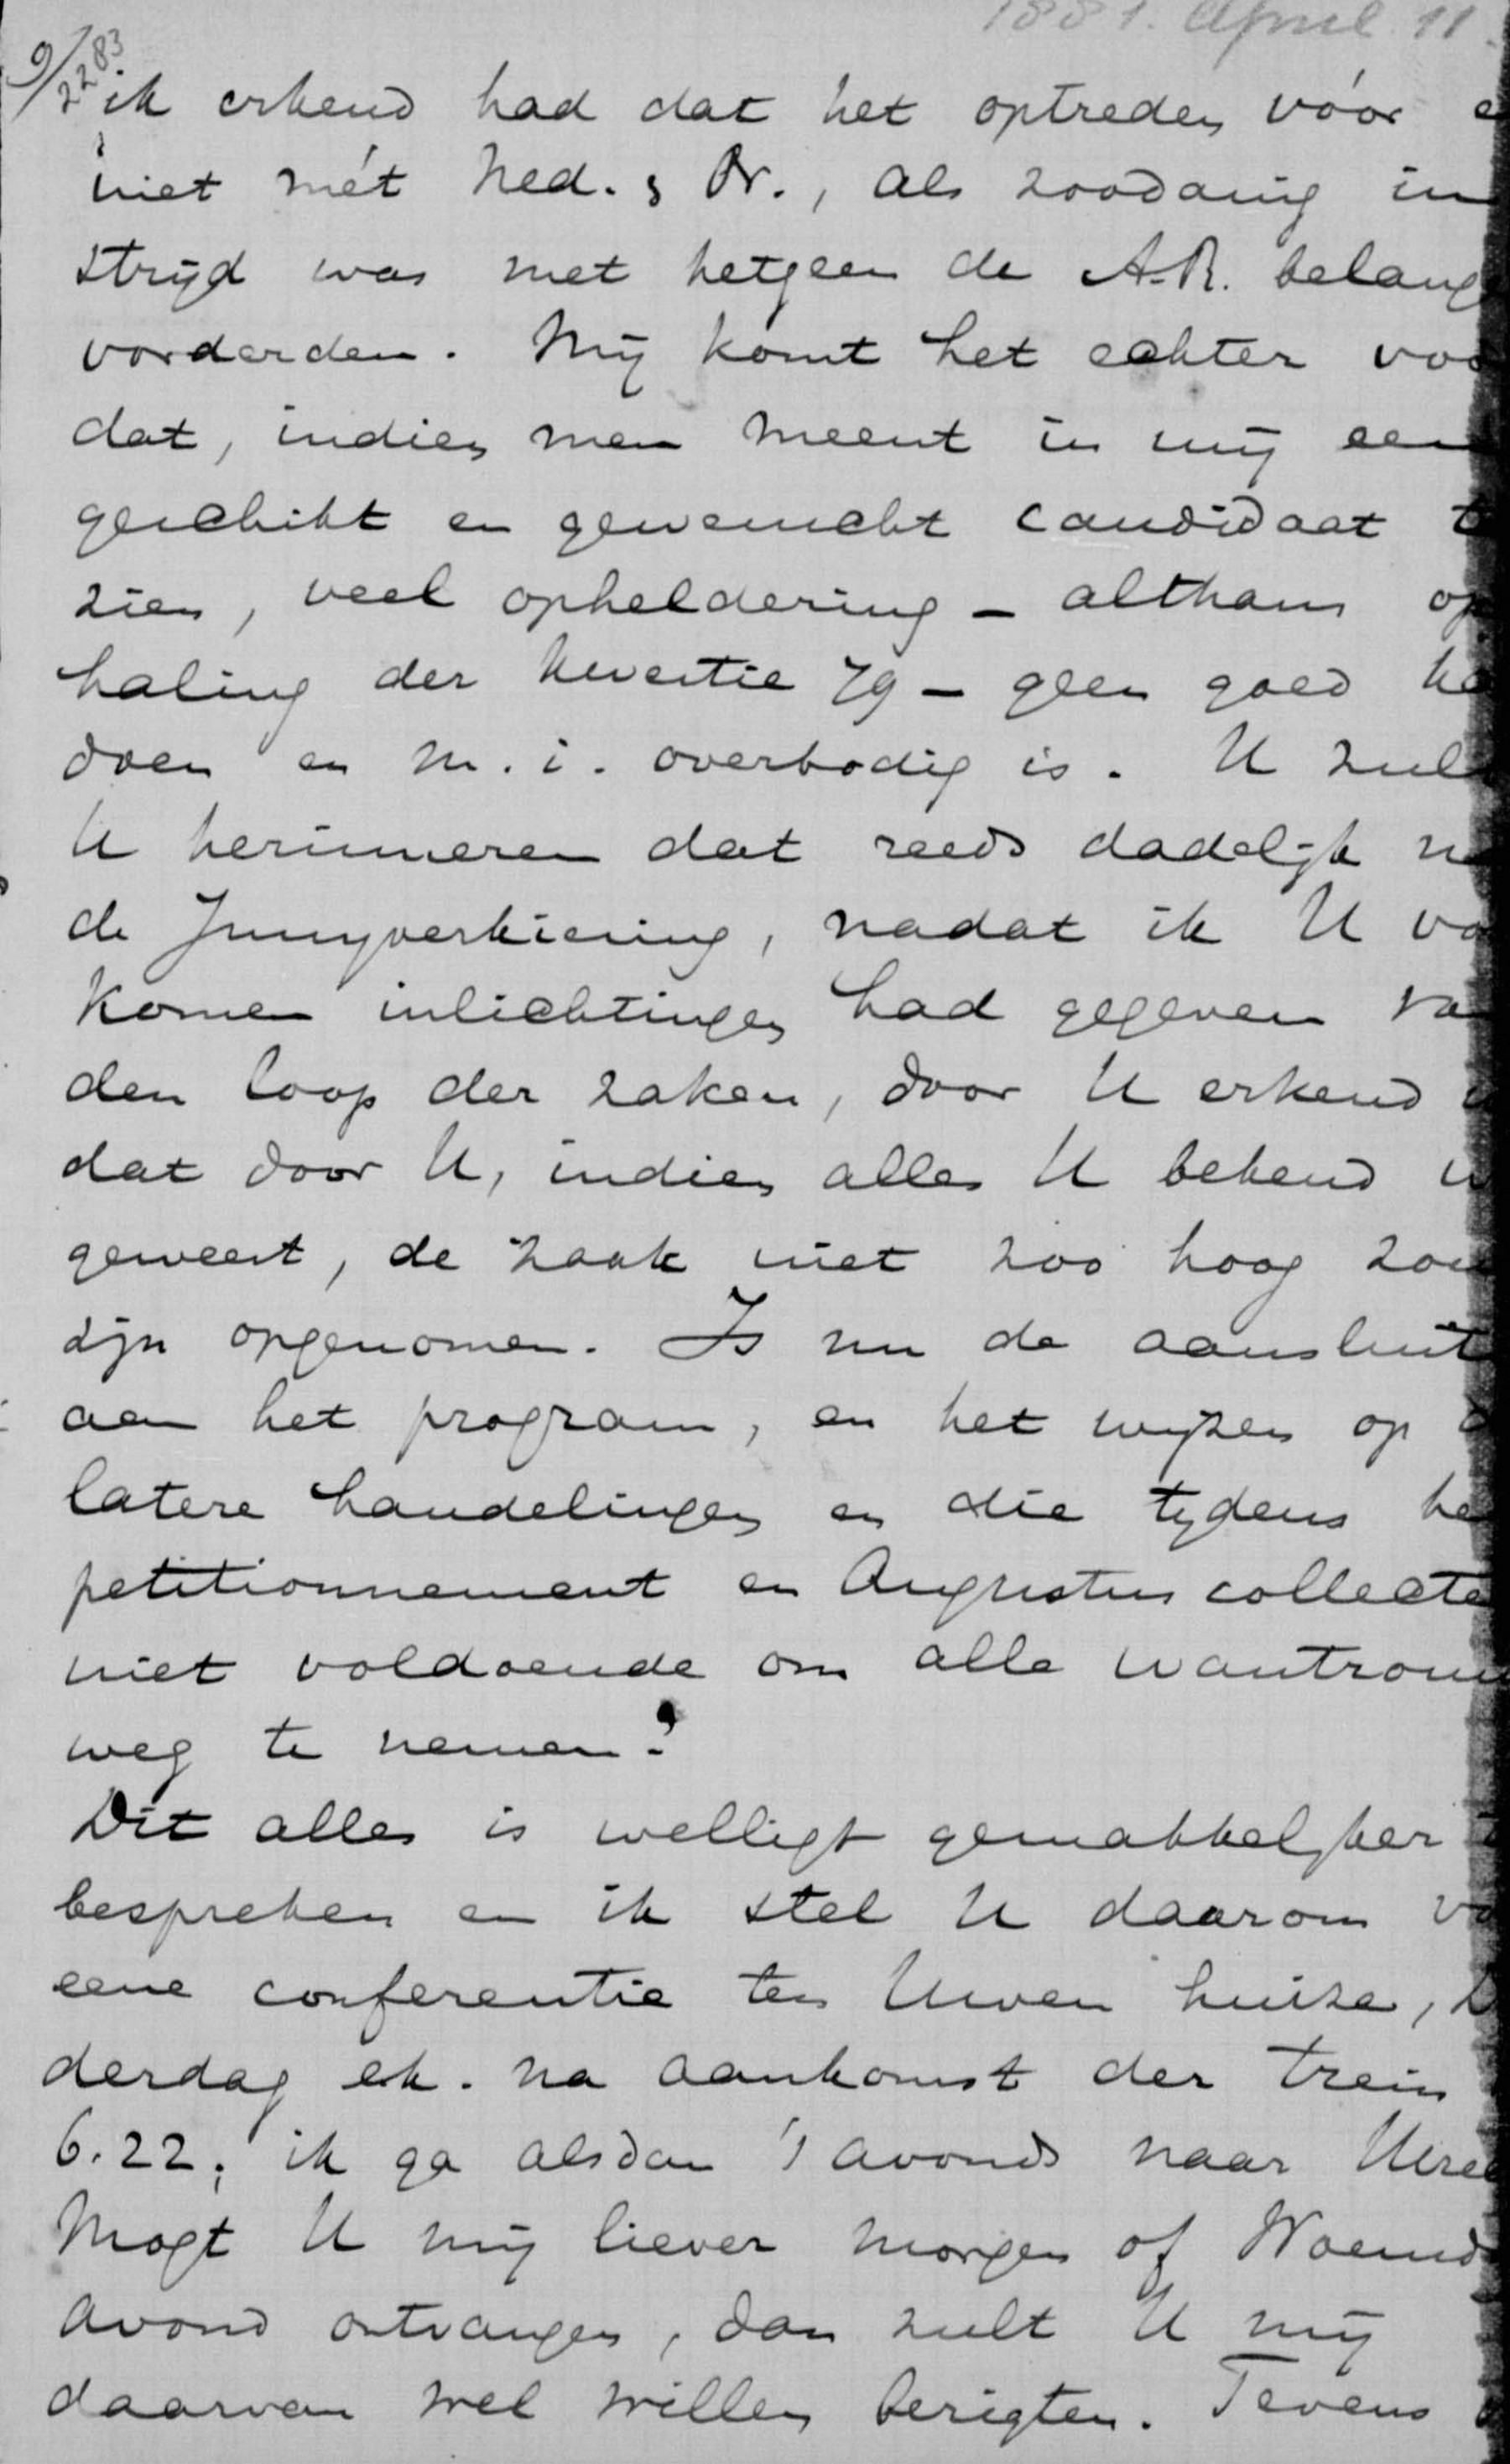 1881. April. 11.
9/2283
ik erkend had dat het optreden vóór e
niet mét Ned. & Or., als zoodanig in
strijd was met hetgeen de A.R. belang
vorderden. Mij komt het echter voo
dat, indien men meent in mij een
geschikt en gewenscht candidaat t
zien, veel opheldering – althans op
haling der kwestie 79 – geen goed ka
doen en m.i. overbodig is. U zul
U herinneren dat reeds dadelijk na
de Junyverkiezing, nadat ik U vo
komen inlichtingen had gegeven va
den loop der zaken, door U erkend
dat door U, indien alles U bekend w
geweest, de zaak niet zoo hoog zou
zijn opgenomen. Is nu de aansluit
aan het program, en het wijzen op d
latere handelingen en die tydens he
petitionnement en Augustus collecte
niet voldoende om alle wantrouw
weg te nemen?
Dit alles is welligt gemakkelijker t
bespreken en ik stel U daarom vo
eene conferentie ten Uwen huize, D
derdag ek. na aankomst der trein
6.22; ik ga alsdan 's avonds naar Utrec
Mogt U mij liever morgen of Woensd
avond ontvangen, dan zult U mij
daarvan wel willen berigten. Tevens